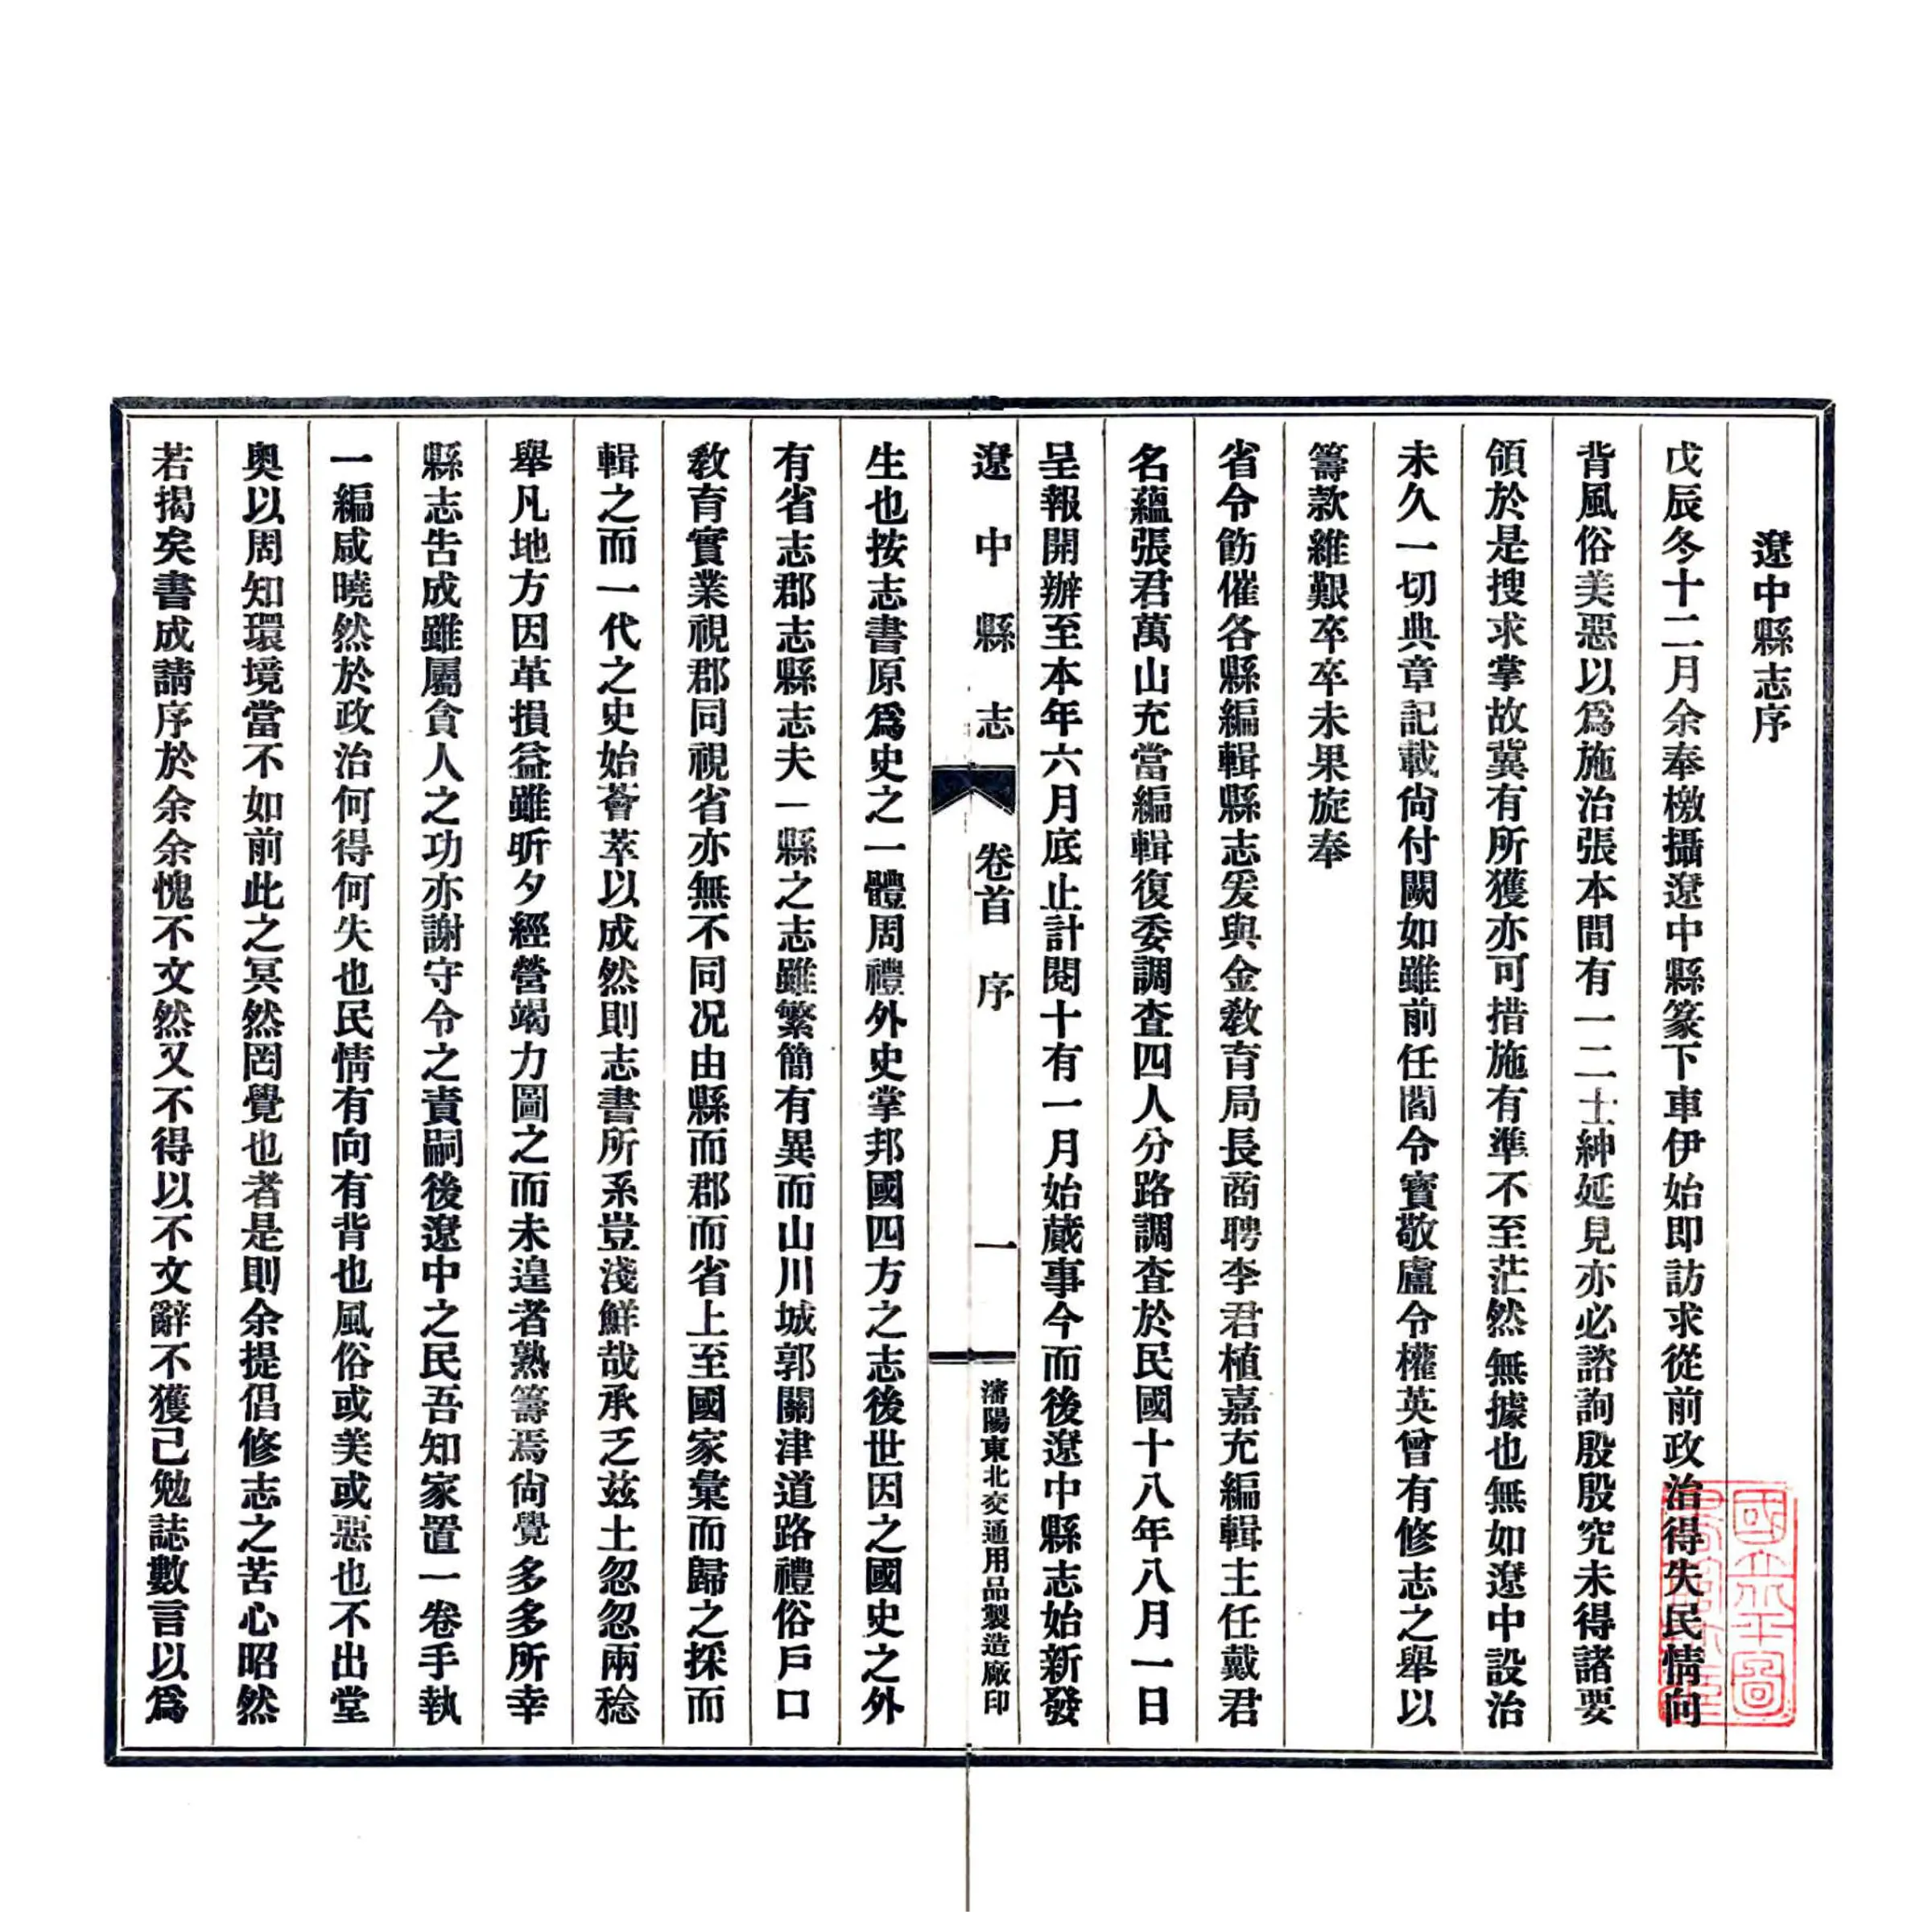 遼中縣志序
戊辰冬十二月余奉檄攝遼中縣篆下車伊始即訪求從前政治得失民情向
背風俗美惡以爲施治張本間有一二士紳延見亦必諮詢殷殷究未得諸要
領於是搜求掌故冀有所獲亦可措施有準不至茫然無據也無如遼中設治
未久一切典章記載尙付闕如雖前任閻令寶敬盧令權英曾有修志之舉以
籌款維艱卒卒未果旋奉
省令飭催各縣編輯縣志爰與金敎育局長商聘李君植嘉充編輯主任戴君
名蘊張君萬山充當編輯復委調查四人分路調查於民國十八年八月一日
呈報開辦至本年六月底止計閱十有一月始蕆事今而後遼中縣志始新發
遼中縣志 卷首 序 一 瀋陽東北交通用品製造廠印
生也按志書原爲史之一體周禮外史掌邦國四方之志後世因之國史之外
有省志郡志縣志夫一縣之志雖繁簡有異而山川城郭關津道路禮俗戶口
敎育實業視郡同視省亦無不同况由縣而郡而省上至國家彙而歸之採而
輯之而一代之史始薈萃以成然則志書所系豈淺鮮哉承乏玆土忽忽兩稔
舉凡地方因革損益雖昕夕經營竭力圖之而未遑者熟籌焉尙覺多多所幸
縣志告成雖屬貪人之功亦謝守令之責嗣後遼中之民吾知家置一卷手執
一編咸曉然於政治何得何失也民情有向有背也風俗或美或惡也不出堂
奧以周知環境當不如前此之冥然罔覺也者是則余提倡修志之苦心昭然
若揭矣書成請序於余余愧不文然又不得以不文辭不獲己勉誌數言以爲
國立北平圖